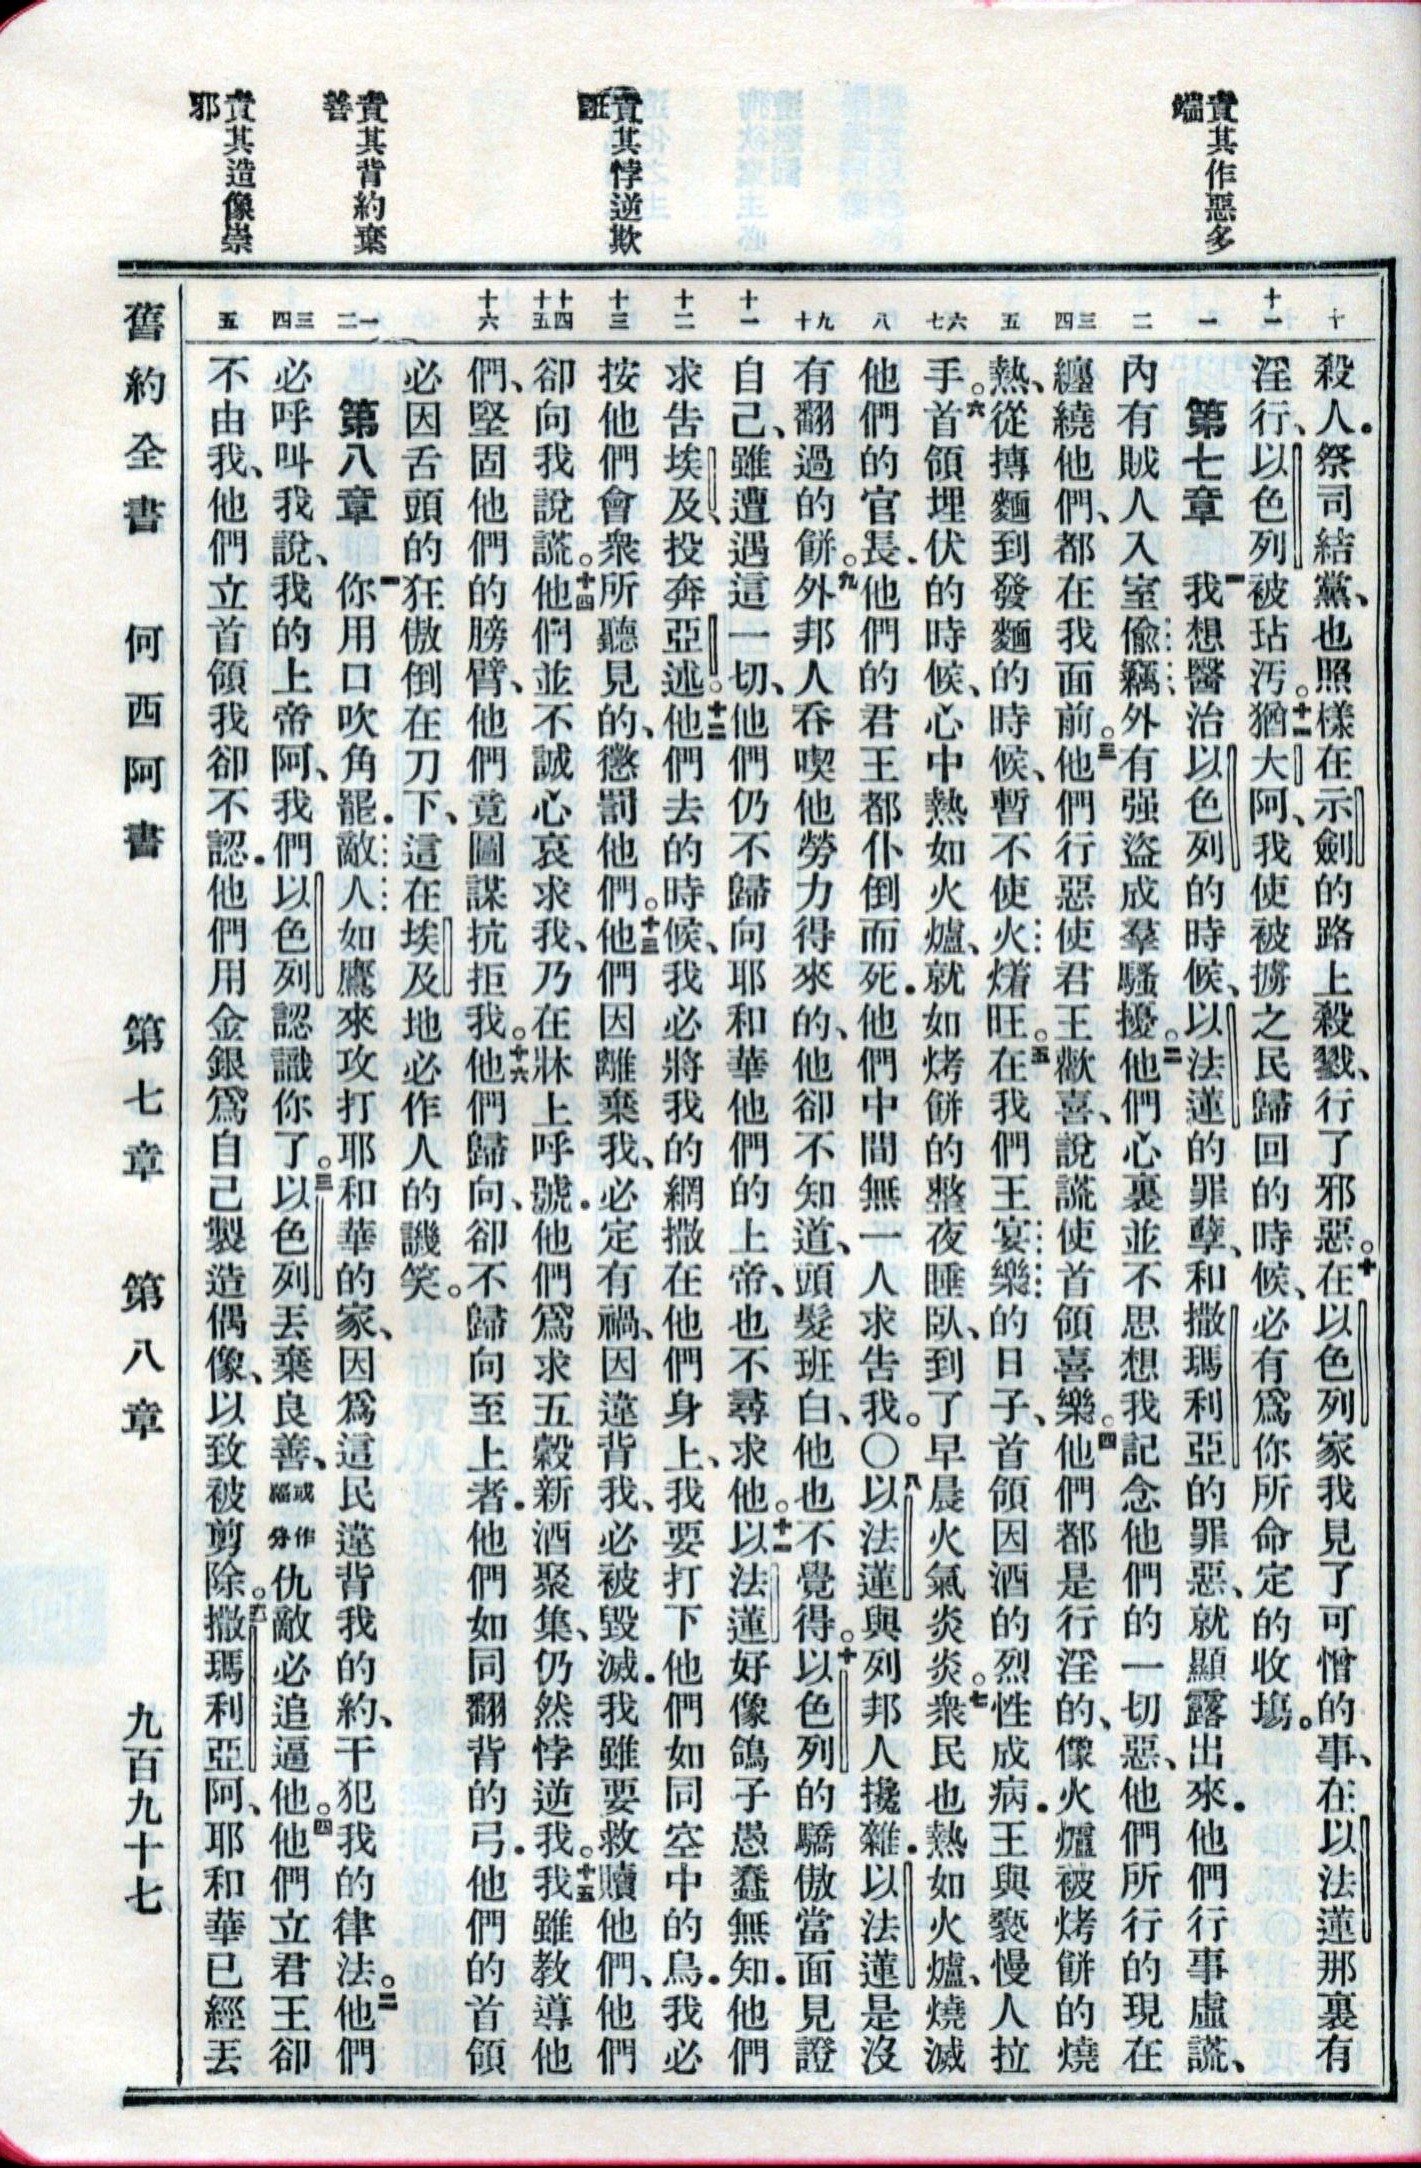 責其作惡多
端
責其悖逆欺
誑
責其背約棄
善
責其造像崇
邪
十
十一
一
二
三
四
五
六
七
八
九
十
十一
十二
十三
十四
十五
十六
一
二
三
四
五
殺人．祭司結黨、也照樣在示劍的路上殺戮、行了邪惡。十在以色列家我見了可憎的事、在以法蓮那裏有
淫行、以色列被玷汚。十一猶大阿、我使被擄之民歸回的時候、必有爲你所命定的收塲。
第七章　一我想醫治以色列的時候、以法蓮的罪孽、和撒瑪利亞的罪惡、就顯露出來．他們行事虛謊、
內有賊人入室偷竊、外有强盜成羣騷擾。二他們心裏並不思想我記念他們的一切惡、他們所行的現在
纏繞他們、都在我面前。三他們行惡使君王歡喜、說謊使首領喜樂。四他們都是行淫的、像火爐被烤餅的燒
熱、從摶麵到發麵的時候、暫不使火𤏸旺。五在我們王宴樂的日子、首領因酒的烈性成病．王與褻慢人拉
手。六首領埋伏的時候、心中熱如火爐、就如烤餅的整夜睡臥、到了早晨火氣炎炎。七衆民也熱如火爐、燒滅
他們的官長．他們的君王都仆倒而死．他們中間無一人求告我。〇八以法蓮與列邦人攙雜．以法蓮是沒
有翻過的餅。九外邦人呑喫他勞力得來的、他卻不知道、頭髮班白、他也不覺得。十以色列的驕傲當面見證
自己、雖遭遇這一切、他們仍不歸向耶和華他們的上帝、也不尋求他。十一以法蓮好像鴿子愚蠢無知．他們
求告埃及、投奔亞述。十二他們去的時候、我必將我的網撒在他們身上、我要打下他們如同空中的鳥．我必
按他們會衆所聽見的、懲罰他們。十三他們因離棄我、必定有禍、因違背我、必被毀滅．我雖要救贖他們、他們
卻向我說謊。十四他們並不誠心哀求我、乃在牀上呼號．他們爲求五穀新酒聚集、仍然悖逆我。十五我雖教導他
們、堅固他們的膀臂、他們竟圖謀抗拒我。十六他們歸向、卻不歸向至上者．他們如同翻背的弓．他們的首領
必因舌頭的狂傲倒在刀下、這在埃及地必作人的譏笑。
第八章　一你用口吹角罷．敵人如鷹來攻打耶和華的家、因爲這民違背我的約、干犯我的律法。二他們
必呼叫我說、我的上帝阿、我們以色列認識你了。三以色列丟棄良善、或作福分仇敵必追逼他。四他們立君王卻
不由我、他們立首領我卻不認．他們用金銀爲自己製造偶像、以致被剪除。五撒瑪利亞阿、耶和華已經丟
舊約全書　何西阿書　第七章　第八章　九百九十七